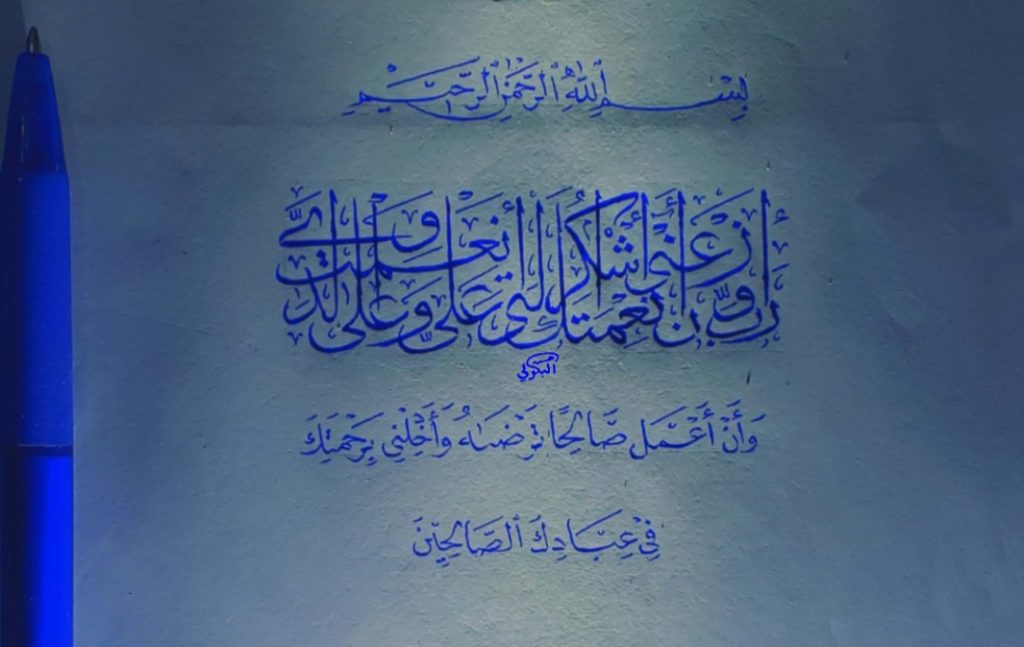 بِسْمِ ٱللَّهِ ٱلرَّحْمَٰنِ ٱلرَّحِيمِ
رَبِّ أَوْزِعْنِي أَنْ أَشْكُرَ نِعْمَتَكَ الَّتِي أَنْعَمْتَ عَلَيَّ وَعَلَى وَالِدَيَّ
وَأَنْ أَعْمَل صَّالِحًا تَرْضَىٰهُ وَأَدْخِلْنِي بِرَحْمَتِكَ
فِي عِبَادِكَ ٱلصَّالِحِينَ